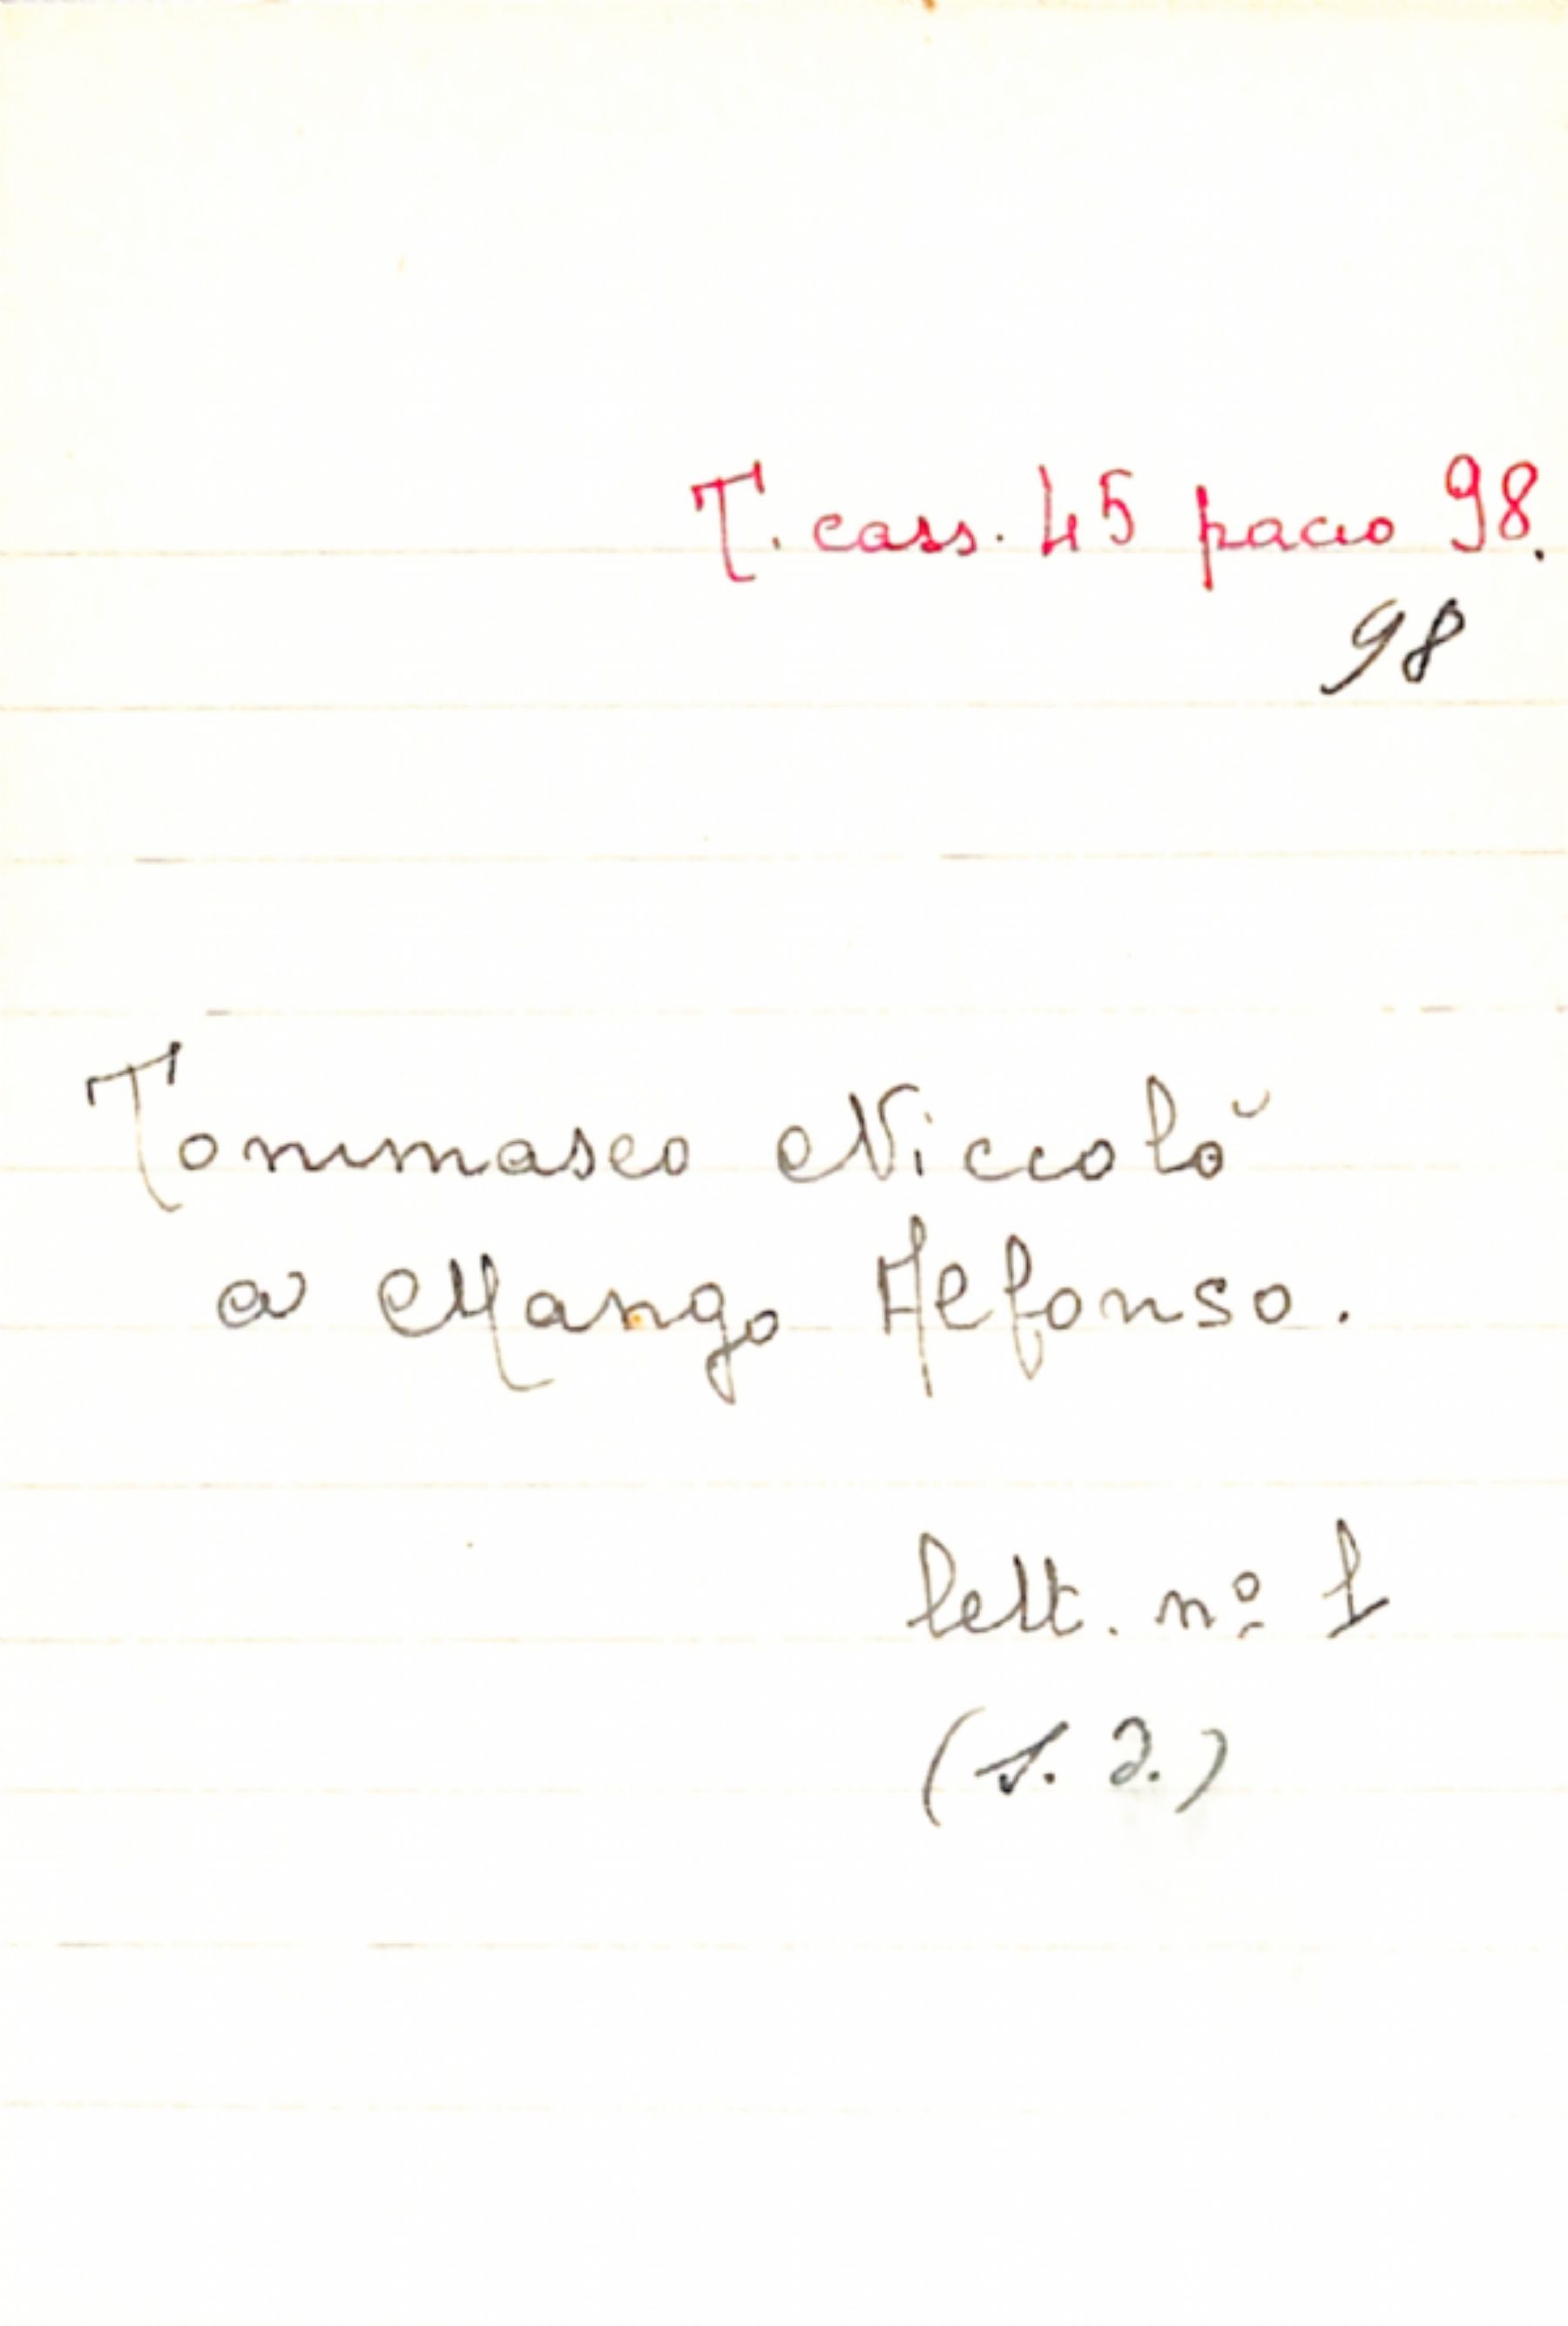 T. cass. 45 pacco 98.
98
Tommaseo Niccolò
a Mango Alfonso.
lett. nº 1
(s. d.)